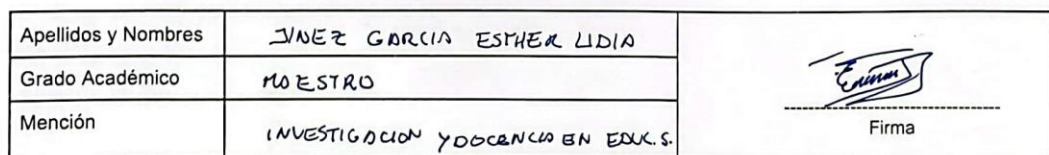 Apellidos y Nombres JNEZ GARCIA ESTHER LIDIA
Grado Académico MAESTRO
Mención INVESTIGACION Y DOCENCIA EN EDUC. S.
Firma